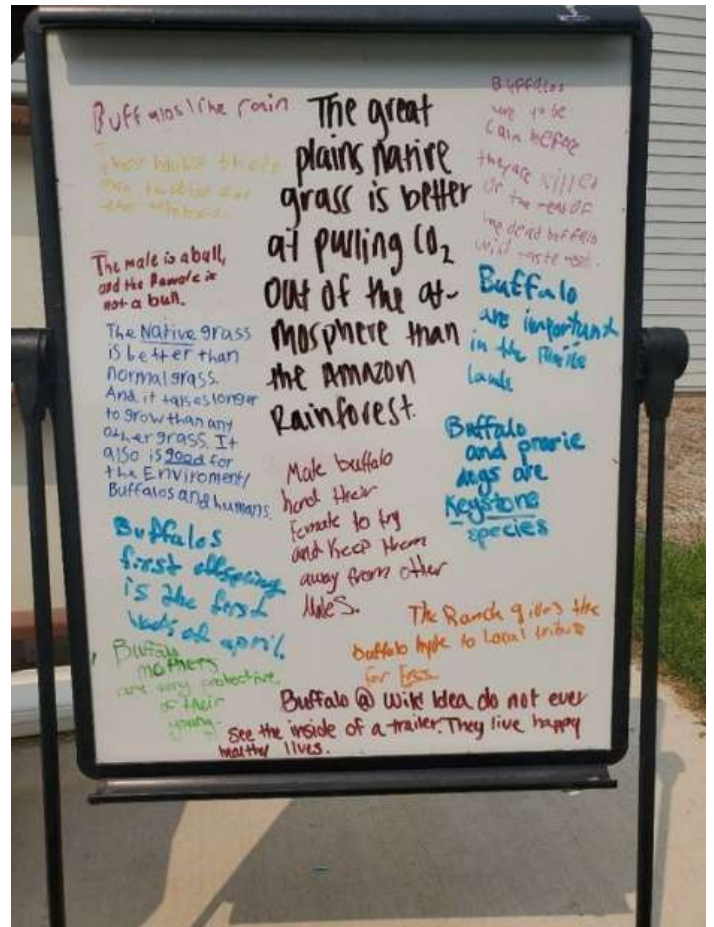 Buffalos like rain
They
the
The male is a bull,
and the Famale is
not a bull.
The Native grass
is better than
normal grass.
And it takes longer
to grow than any
other grass. It
also is good for
the Enviroment/
Buffalos and humans.
Buffalos
first offspring
is the first
of april.
Buffalo
mothers
are very protective
of their
young.
The great
plains native
grass is better
at pulling CO2
out of the at-
mosphere than
the Amazon
Rainforest.
Male buffalo
herd their
female to try
and Keep them
away from other
Males.
Buffalos
to be
before
they are killed
or the rest of
the dead buffalo
will taste
Buffalo
are important
in the
lands
Buffalo
and prarie
dogs are
Keystone
species
The Ranch gives the
buffalo to Local
for Free
Buffalo @ Wild Idea do not ever
see the inside of a trailer. They live happy
healthy lives.